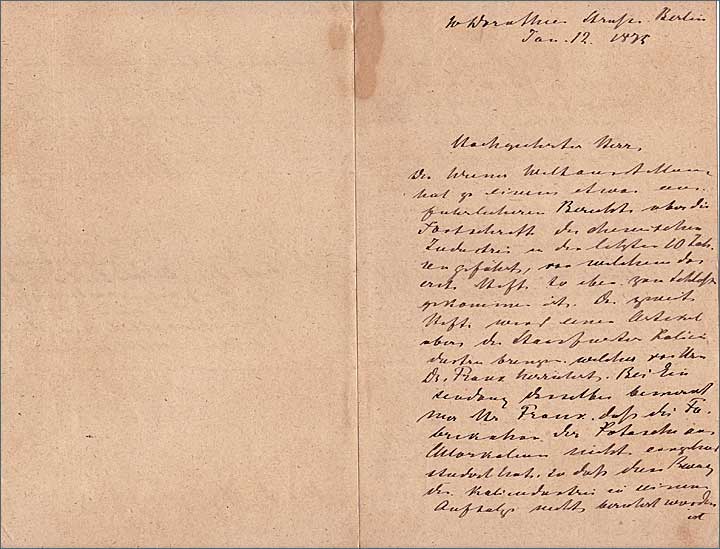 10 Dorotheen Strasse. Berlin
Jan. 12. 1875
Hochgeehrter Herr,
Die Wiener Weltausstellung
hat zu einem etwas aus-
führlicheren Bericht über die
Fortschritte der chemischen
Industrie in den letzten 10 Jah-
ren geführt, von welchem das
erste Heft so eben zum Schluss
gekommen ist. Das zweite
Heft wird einen Artikel
über die Stassfurter Kaliin-
dustrie bringen, welcher von Hrn
Dr. Frank herrührt. Bei Ein-
sendung desselben bemerkt
mir Hr. Frank, daß die Fa-
brikation der Potasche aus
Chlorkalium nicht eingehend
studirt hat, so daß dieser Zweig
der Kaliindustrie in seinem
Aufsatze nicht berührt worden
ist